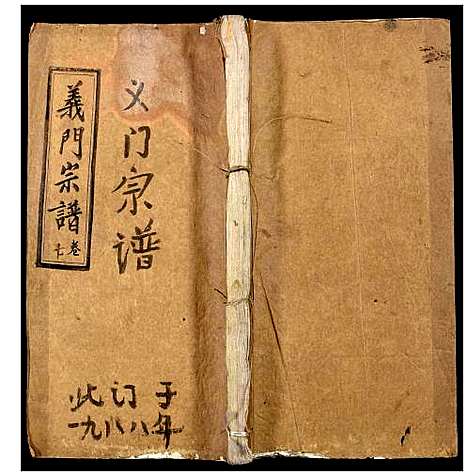 義門宗譜
卷七
义门宗谱
此订于
一九八八年